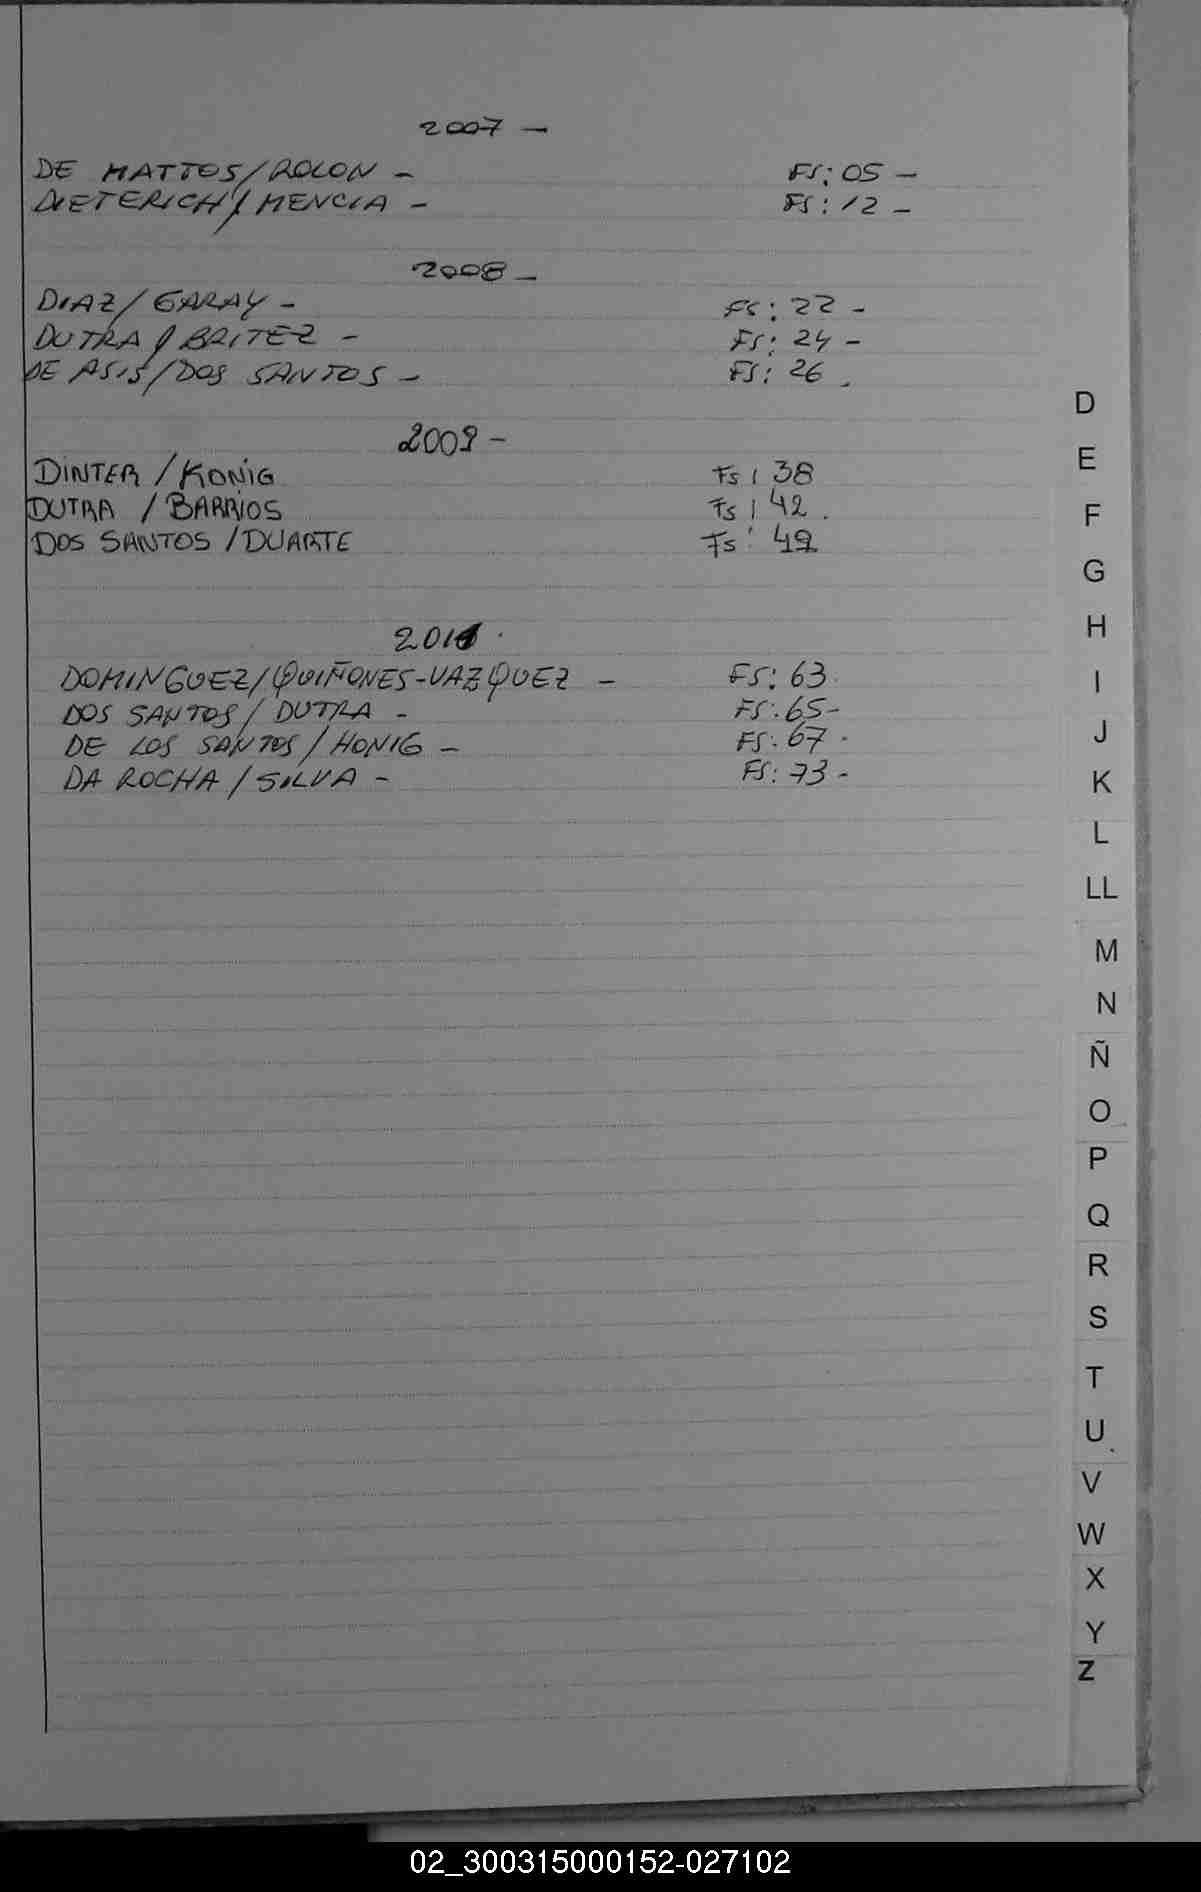 2007 -
DE MATTOS/ROLON - FS: 05 -
DIETERICH/MENCIA - FS: 12 -
2008 -
DIAZ/GARAY - FS: 22 -
DUTRA/BRITEZ - FS: 24 -
DE ASIS/DOS SANTOS - FS: 26.
2009 -
DINTER/KONIG Fs: 38
DUTRA/BARRIOS Fs: 42.
DOS SANTOS/DUARTE Fs: 49
2011.
DOMINGUEZ/QUIÑONES-VAZQUEZ - FS: 63.
DOS SANTOS/DUTRA - FS: 65-
DE LOS SANTOS/HONIG - FS: 67.
DA ROCHA/SILVA - FS: 73-
D
E
F
G
H
I
J
K
L
LL
M
N
Ñ
O
P
Q
R
S
T
U
V
W
X
Y
Z
02_300315000152-027102